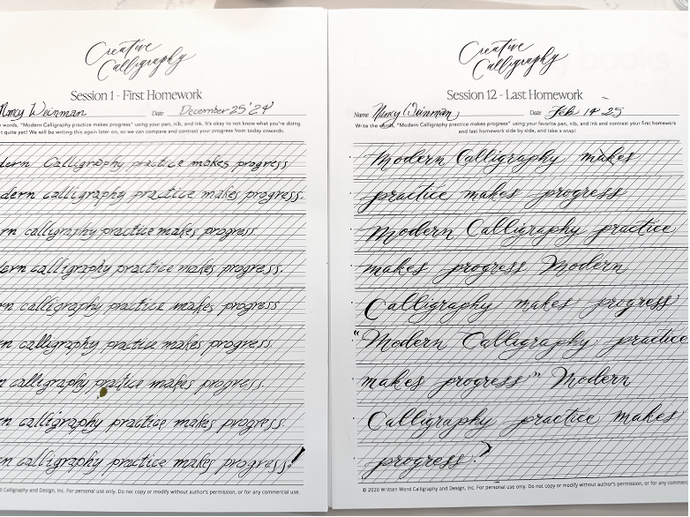 Creative
Calligraphy
Session 1 - First Homework
Nancy Weinman Date December 25'24
words, "Modern Calligraphy practice makes progress" using your pen, nib, and ink. It's okay to not know what you're doing
quite yet! We will be writing this again later on, so we can compare and contrast your progress from today onwards.
dern Calligraphy practice makes progress
dern calligraphy practice makes progress.
rn calligraphy practice makes progress
ern calligraphy practice makes progress.
rn calligraphy practice makes progress
n calligraphy practice makes progress.
n calligraphy practice makes progress.
n calligraphy practice makes progress.
n calligraphy practice makes progress!
Calligraphy and Design, Inc. For personal use only. Do not copy or modify without author's permission, or for any commercial use.
Creative
Calligraphy
Session 12 - Last Homework
Name Nancy Weinman Date Feb 14 25
Write the words, "Modern Calligraphy practice makes progress" using your favorite pen, nib, and ink and contrast your first homework
and last homework side by side, and take a snap!
Modern Calligraphy makes
practice makes progress
Modern Calligraphy practice
makes progress Modern
Calligraphy makes progress
"Modern Calligraphy practice
makes progress" Modern
Calligraphy practice makes
progress.
© 2020 Written Word Calligraphy and Design, Inc. For personal use only. Do not copy or modify without author's permission, or for any comme